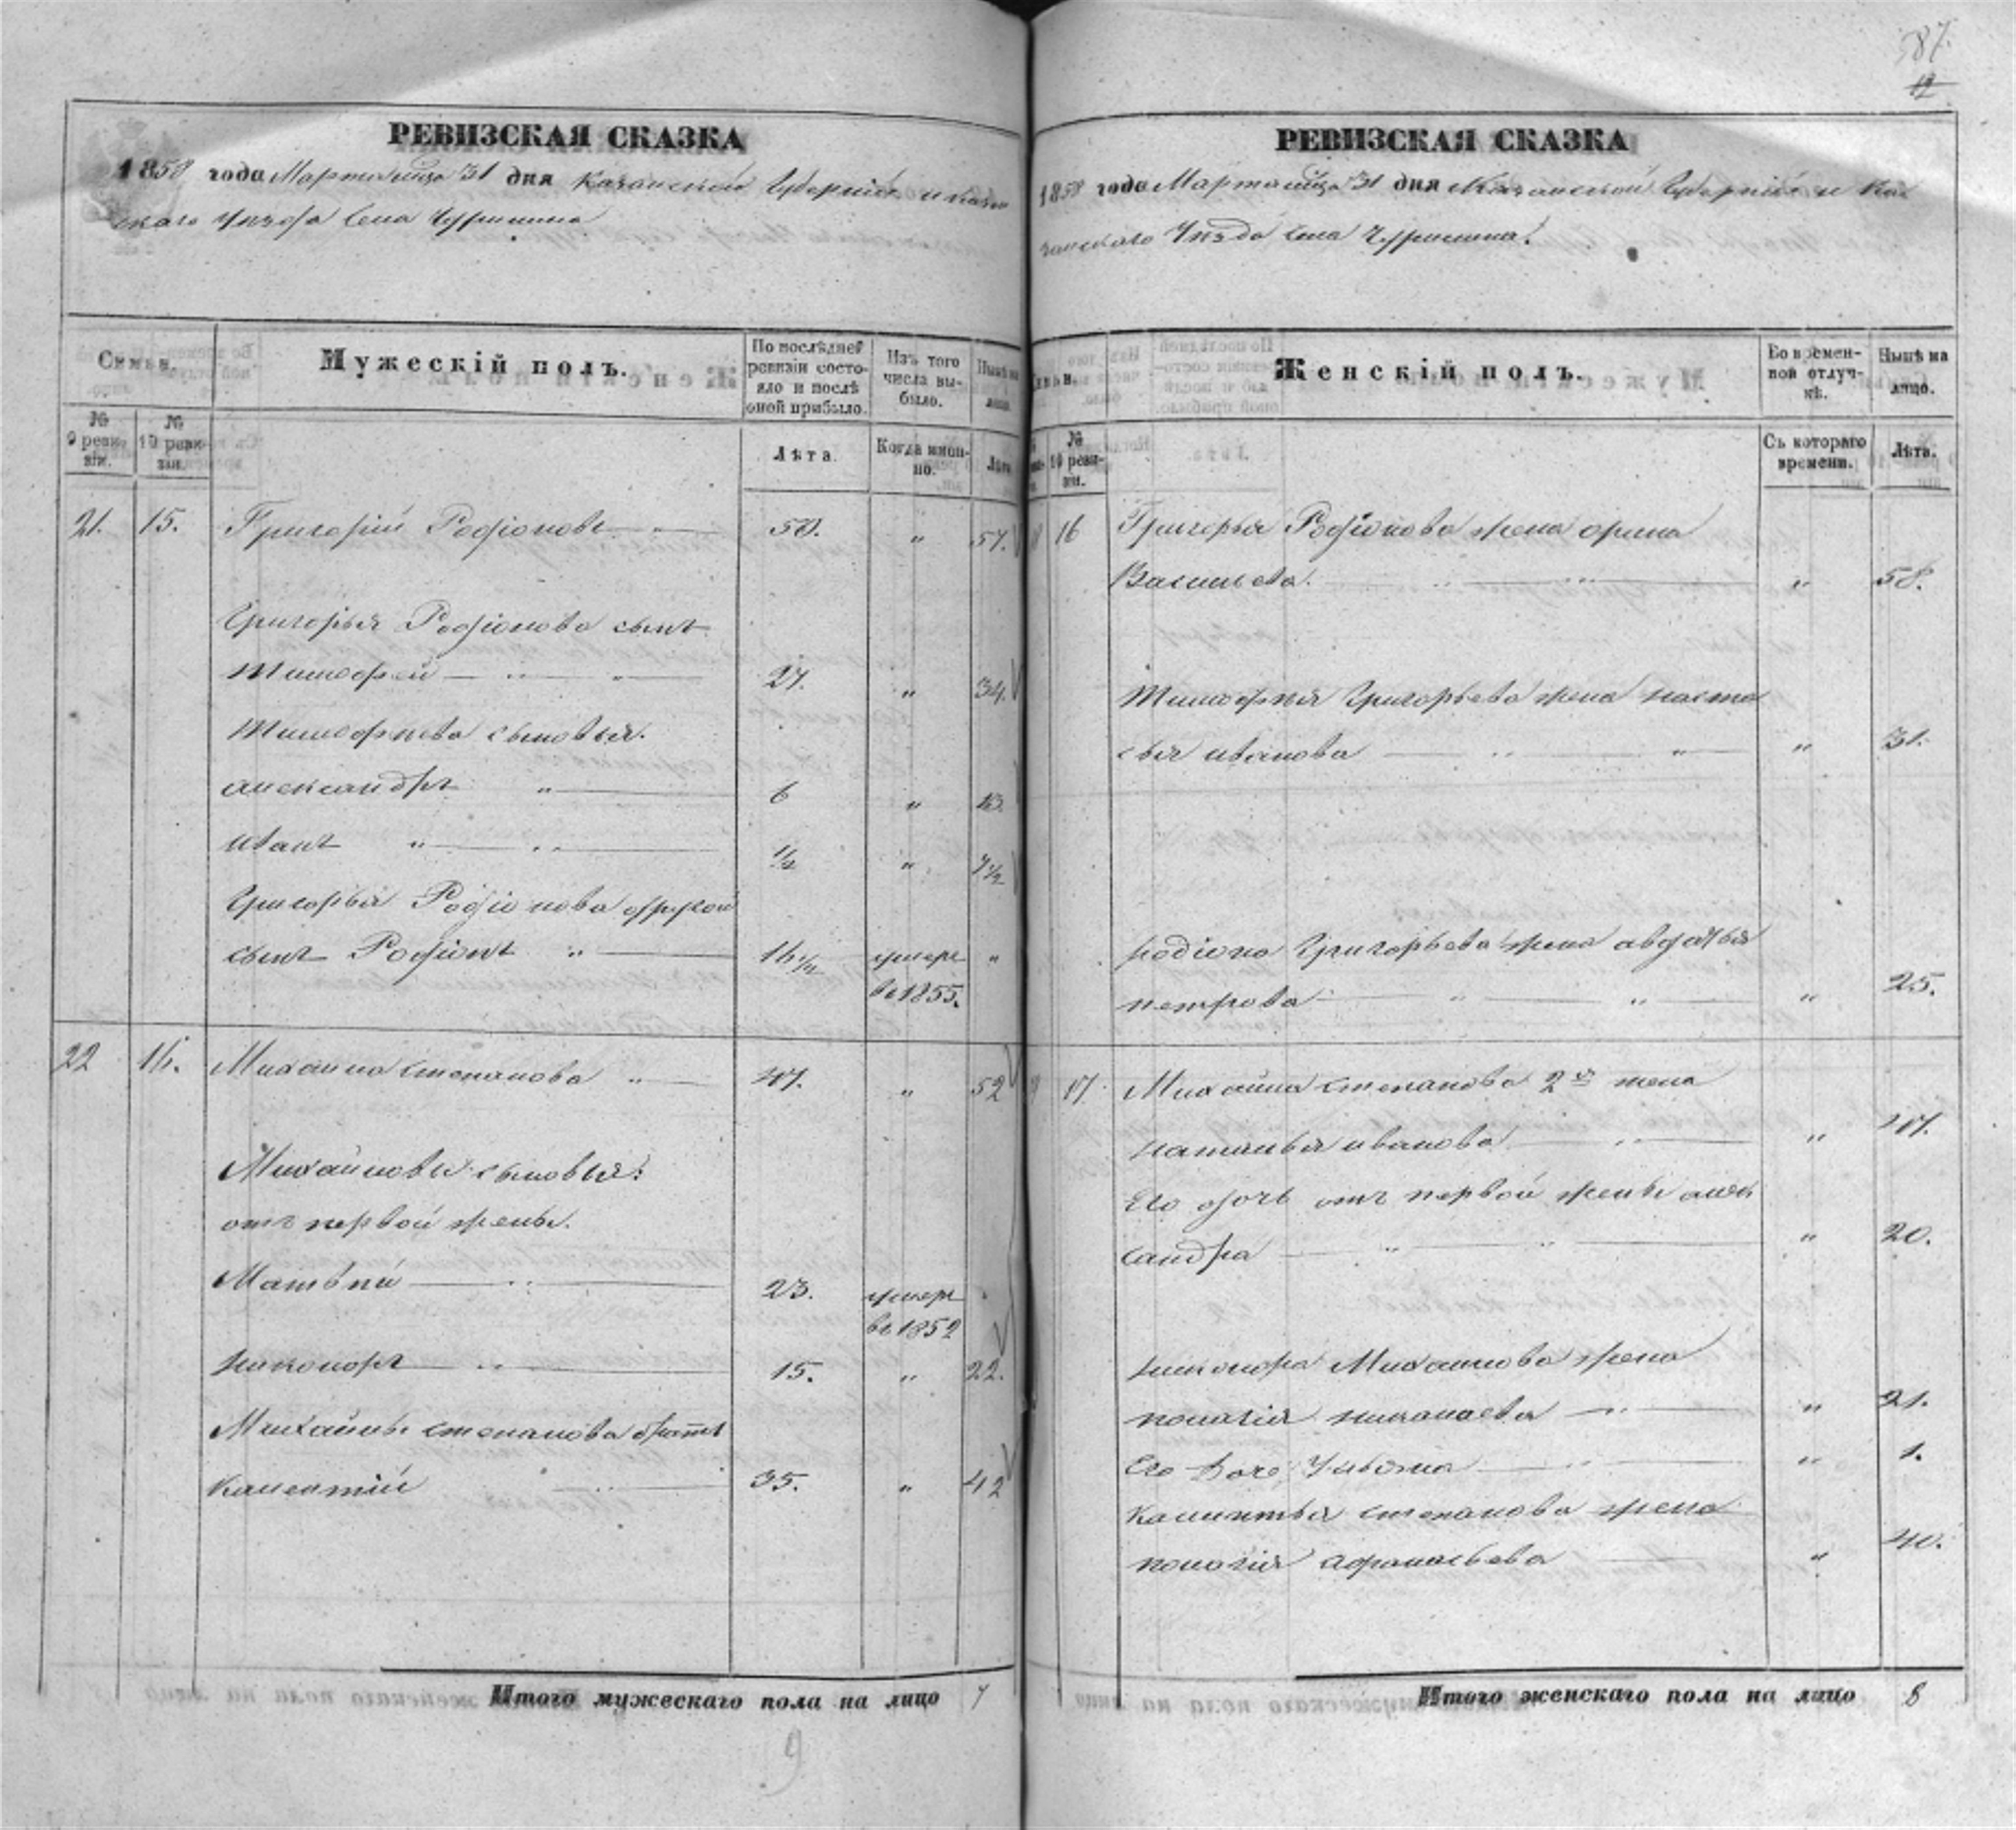 87.
12
РЕВИЗСКАЯ СКАЗКА
1858 года Марта мца 31 дня Казанской Губернiи и Казан
скаго Уезда Села
Семьи.
Мужескiй полъ.
По послѣдней ревизiи состояло и послѣ оной прибыло.
Изъ того числа выбыло.
Нынѣ на лицо.
№ 9 ревизiи.
№ 10 ревизiи.
Лѣта.
Когда именно.
Лѣта
21. 15. Григорiй Родiоновъ 50. " 57.
Григорья Родiонова сынъ
Тимофей 27. " 34.
Тимофѣева сыновья.
александръ " 6 " 13.
иванъ " 1/2 " 7 1/2
Григорья Родiонова другой
сынъ Родiонъ " 16 1/2 умеръ "
въ 1855.
22 16. Михаила степанова " 47. " 52
Михайловы сыновья:
отъ первой жены.
Матвѣй 23. умеръ
въ 1852
никоноръ 15. " 22.
Михайлы степанова братъ
калентiй 35. " 42
Итого мужескаго пола на лицо 7
9
РЕВИЗСКАЯ СКАЗКА
1858 года Марта мца 31 дня Казанской Губернiи и Ка
занскаго Уезда села
Семьи.
Женскiй полъ.
Во временной отлучкѣ.
Нынѣ на лицо.
№ 10 ревизiи.
Съ котораго времени.
Лѣта.
16 Григорья Родiонова жена орина
Васильева. " 58.
Тимофѣя Григорьева жена наста
сья иванова " 31.
родiона Григорьева жена авдатья
петрова " 25.
17. Михайла степанова 2я жена
наталья иванова " 47.
Его дочь отъ первой жены алек
сандра " 20.
никонора Михаилова жена
полагiя николаева " 21.
Его дочь Ульяна " 1.
калинтья степанова жена
полагiя афанасьева " 40.
Итого женскаго пола на лицо 8